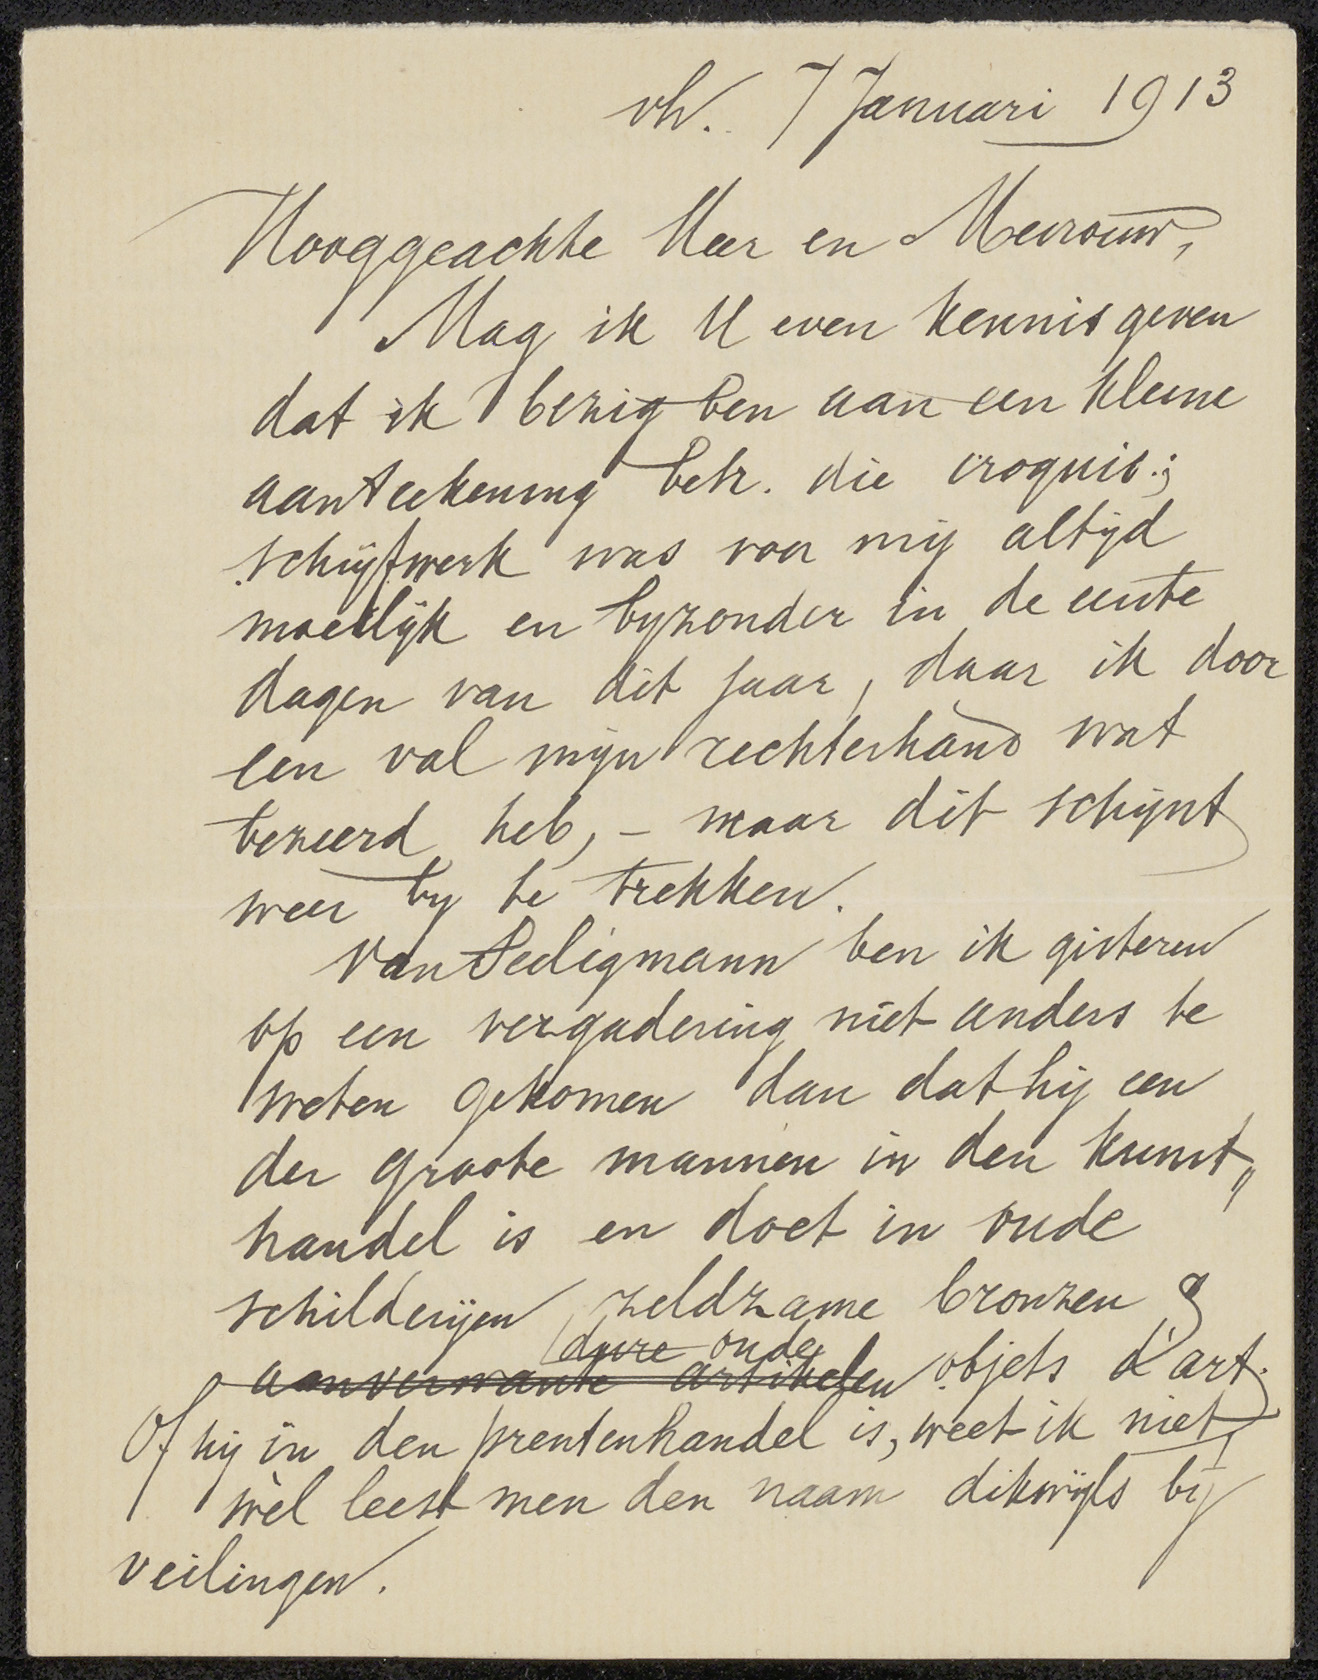 vh. 7 Januari 1913
Hooggeachte Heer en Mevrouw,
Mag ik U even kennis geven
dat ik bezig ben aan een kleine
aanteekening betr. die croquis.;
schrijfwerk was voor mij altijd
moeilijk en byzonder in de eerste
dagen van dit jaar, daar ik door
een val mijn rechterhand wat
bezeerd heb, – maar dit schijnt
weer by te trekken.
Van Seeligmann ben ik gisteren
op een vergadering niet anders te
weten gekomen dan dat hij een
der groote mannen in den kunst„
handel is en doet in oude
schilderijen, zeldzame bronzen &
dure oude
aanverwante artikelen objets d'art.
Of hij in den prentenhandel is, weet ik niet,
wèl leest men den naam dikwijls bij
veilingen.